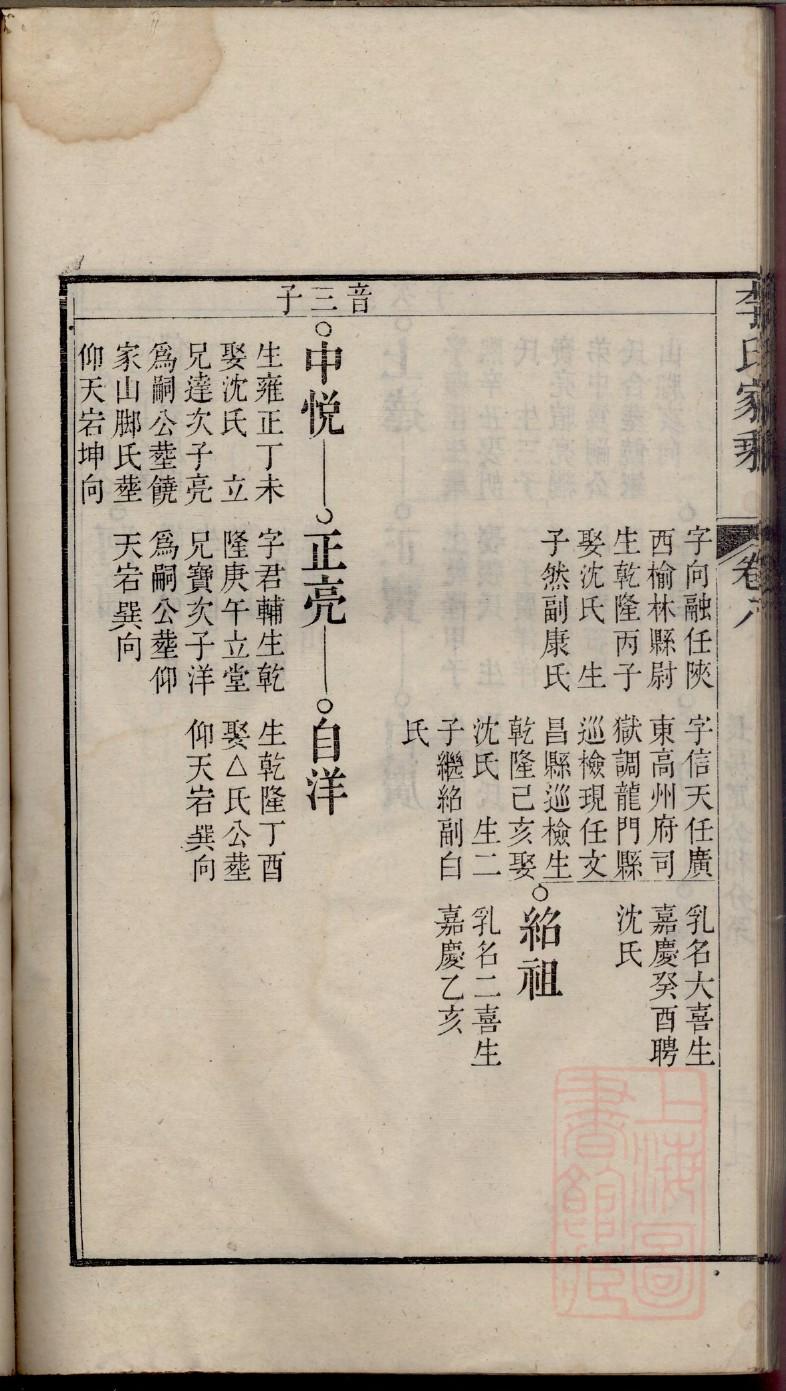 李氏家乘
卷六
字向融任陜
西榆林縣尉
生乾隆丙子
娶沈氏 生
子然副康氏
字信天任廣
東高州府司
獄調龍門縣
巡檢現任文
昌縣巡檢生
乾隆己亥娶
沈氏 生二
子繼紹副白
氏
乳名大喜生
嘉慶癸酉聘
沈氏
紹祖
乳名二喜生
嘉慶乙亥
音三子
中悅
生雍正丁未
娶沈氏 立
兄達次子亮
爲嗣公塟饒
家山脚氏塟
仰天岩坤向
正亮
字君輔生乾
隆庚午立堂
兄寶次子洋
爲嗣公塟仰
天岩巽向
自洋
生乾隆丁酉
娶△氏公塟
仰天岩巽向
上海圖
書館藏